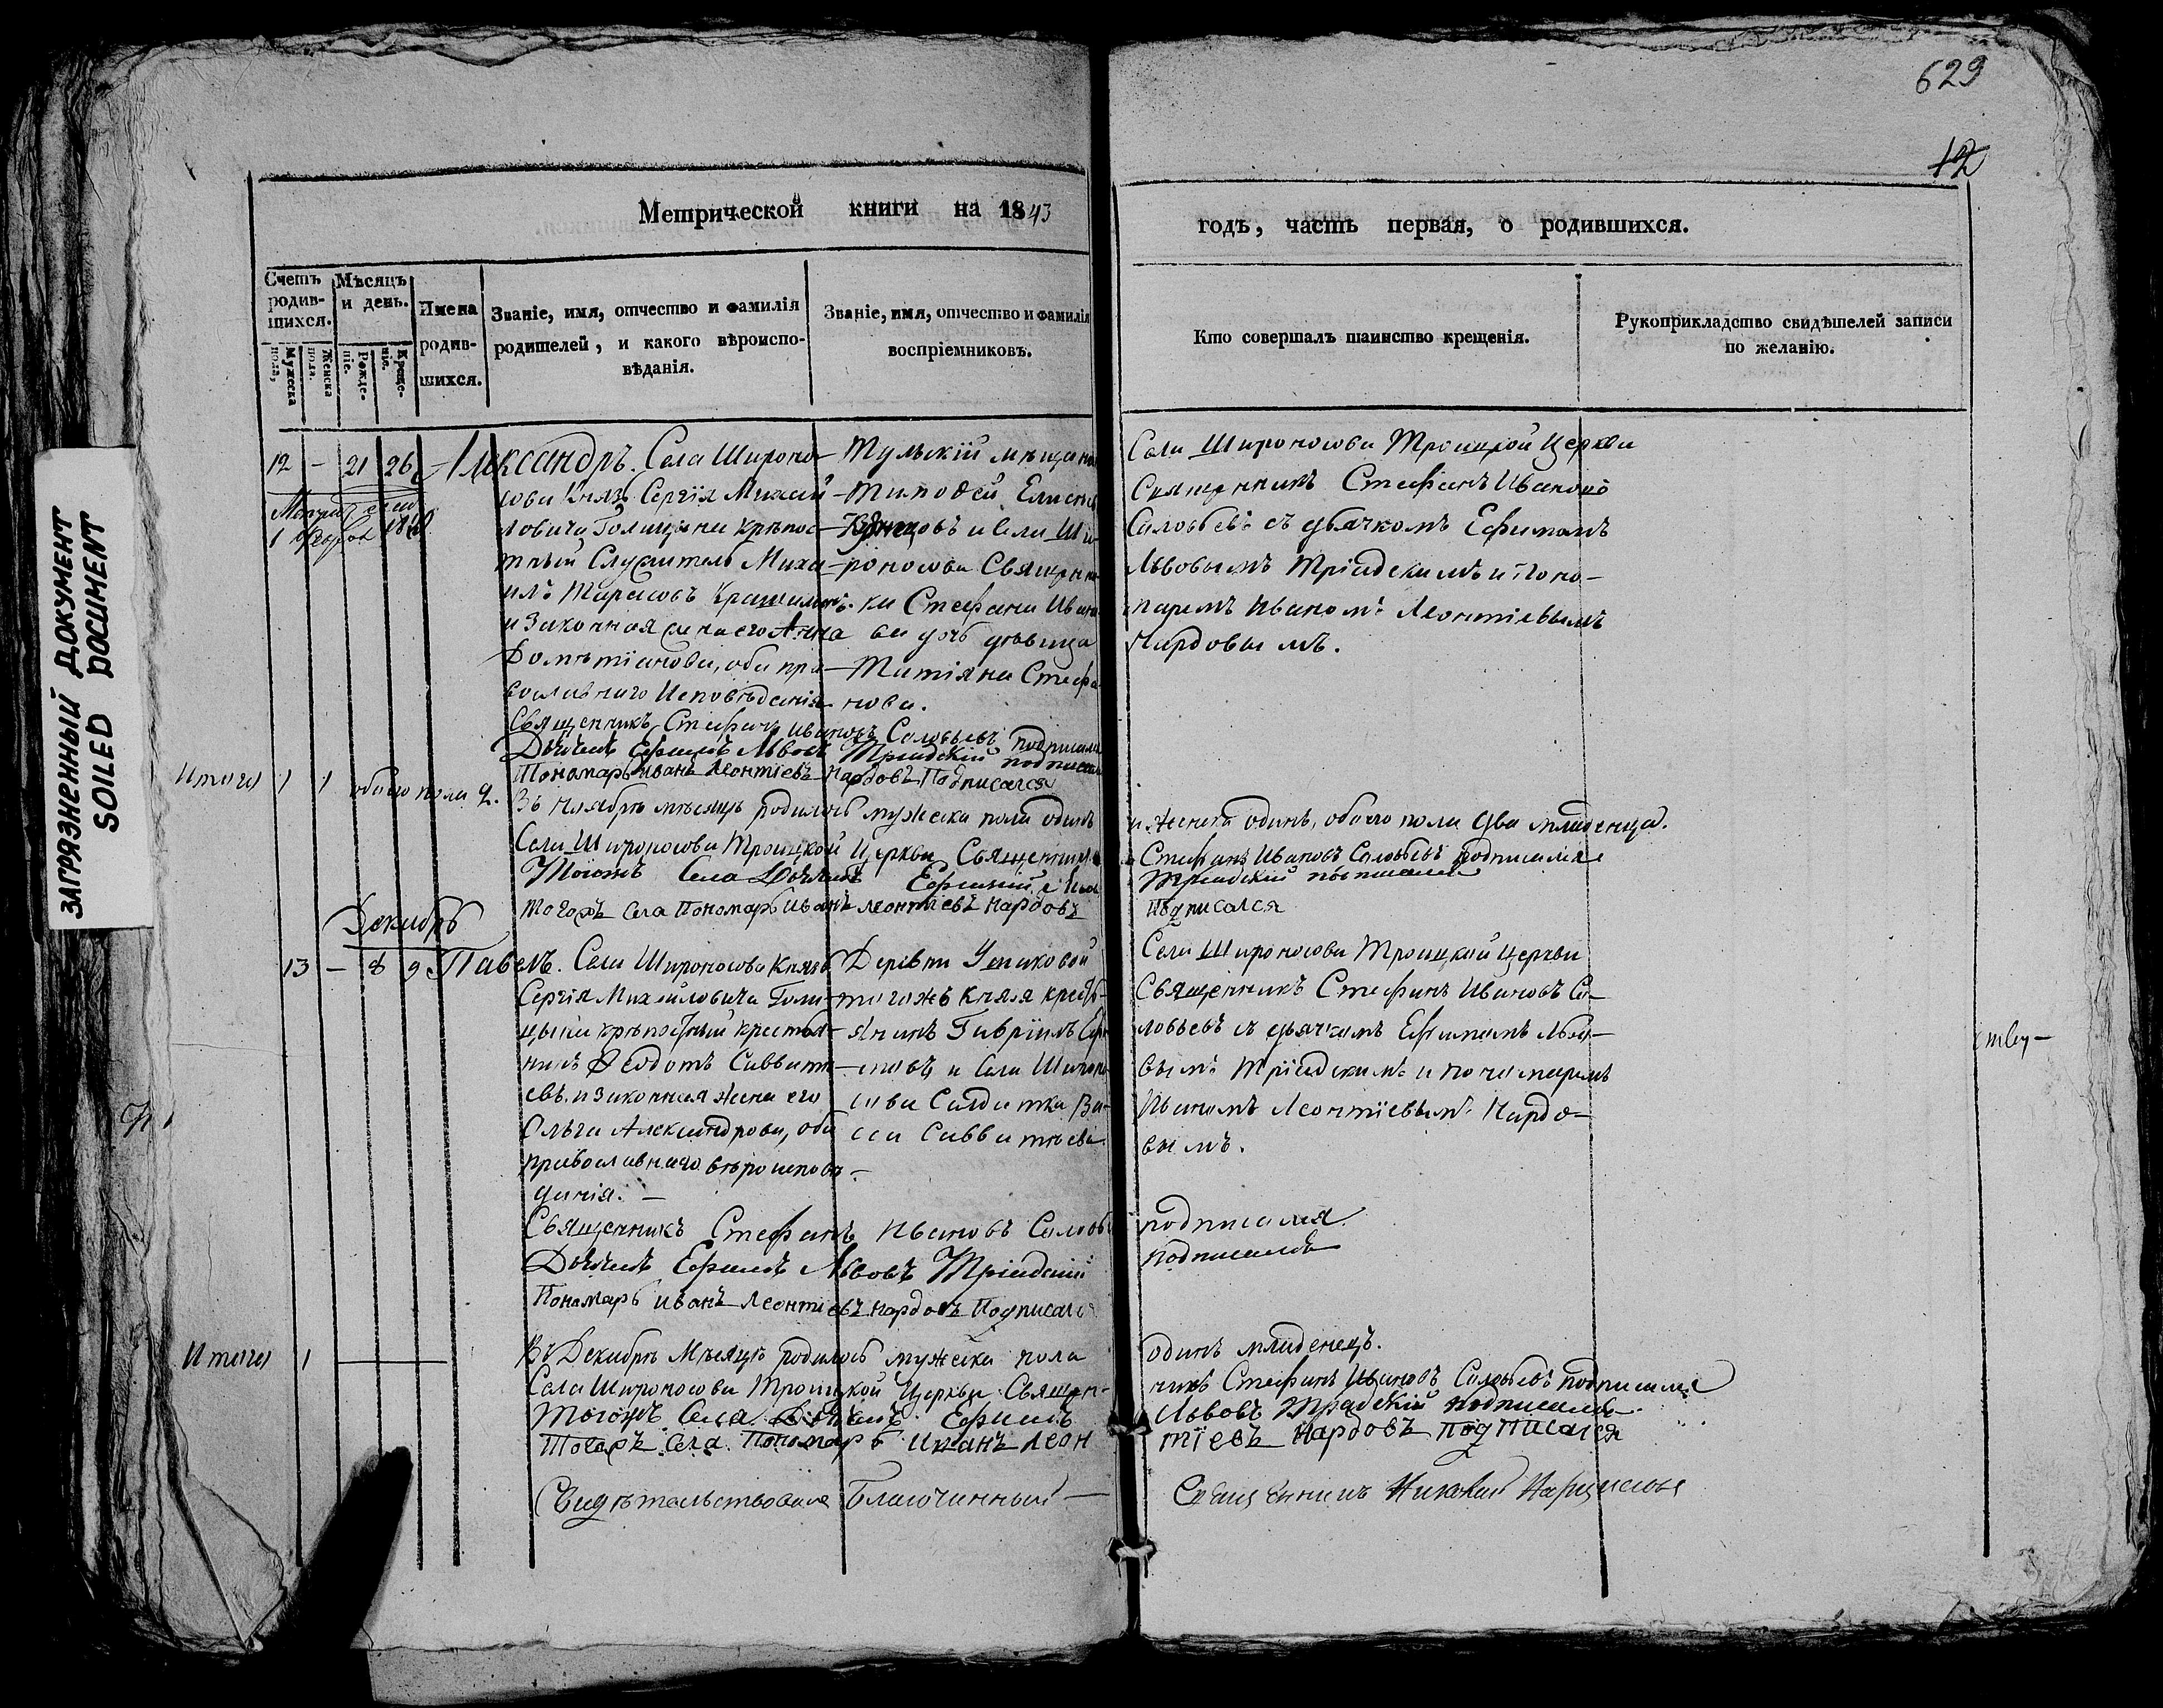 629
12
ЗАГРЯЗНЕННЫЙ ДОКУМЕНТ
SOILED DOCUMENT
Метрической книги на 1843
годъ, часть первая, о родившихся.
Счетъ родив-шихся.
Мужеска пола,
Женска пола.
Мѣсяцъ и день.
Рожде-ніе.
Креще-ніе.
Имена родив-шихся.
Званіе, имя, отчество и фамилія
родителей, и какого вѣроиспо-
вѣданія.
Званіе, имя, отчество и фамилія
воспріемниковъ.
Кто совершалъ таинство крещенія.
Рукоприкладство свидѣтелей записи
по желанію.
12 - 21 26 Александръ.
Села Широно-
сова Князя Сергія Михай-
ловича Голицына крѣпос-
тный Служитель Миха-
илъ Тарасовъ
и Законная жена его Анна
Домѣтіанова, оба пра-
вославнаго Исповѣданія
Тульскій мѣщанинъ
Тимофей
Кузнецовъ и Села Ши-
роносова Священни-
ка Стефана Ивано-
ва дочь дѣвица
Татіана Стефа-
нова.
Села Широносова Троицкой Церкви
Священникъ Стефанъ Ивановъ
Соловьевъ съ дьячкомъ Ефимомъ
Львовымъ Тріадскимъ и Поно-
маремъ Иваномъ Леонтіевымъ
Нардовымъ.
Священникъ Стефанъ Ивановъ Соловьевъ подписался
Дьячекъ Ефимъ Львовъ Тріадскій подписался
Пономарь иванъ Леонтіевъ нардовъ Подписался
Итого 1 1 обоего пола 2.
Въ Ноябрѣ мѣсяцѣ родилось мужеска пола одинъ
и женска одинъ, обоего пола два младенца.
Села Широносова Троицкой Церкви Священникъ
Стефанъ Ивановъ Соловьевъ подписался
Тогожъ Села Дьячекъ Ефимъ
Тріадскій подписался
Тогожъ Села Пономарь иванъ леонтіевъ нардовъ
Подписался
Декабрь
13 - 8 9 Павелъ.
Села Широносова Князя
Сергія Михайловича Голи-
цына крѣпостный крестья-
нинъ Ѳедотъ Савватѣ-
евъ и законная жена его
Ольга Александрова, оба
православнаго вѣроисповѣ-
данія.
Деревни
тогожъ Князя кресть-
янинъ Гавріилъ
и Села Широно-
сова Солдатка Ва-
сса Савватѣева
Села Широносова Троицкой Церкви
Священникъ Стефанъ Ивановъ Со-
ловьевъ съ дьячкомъ Ефимомъ Льво-
вымъ Тріадскимъ и пономаремъ
Иваномъ Леонтіевымъ Нардо-
вымъ.
Священникъ Стефанъ Ивановъ Соловьевъ
подписался
Дьячекъ Ефимъ Львовъ Тріадскій
подписался
Пономарь иванъ Леонтіевъ нардовъ Подписался
Итого 1
Въ Декабрѣ Мѣсяцѣ родилось мужеска пола
одинъ младенецъ.
Села Широносова Троицкой Церкви Священ-
никъ Стефанъ Ивановъ Соловьевъ подписался
Тогожъ Села Дьячекъ Ефимъ
Львовъ Тріадскій подписался
Тогожъ Села Пономарь Иванъ Леон
тіевъ Нардовъ подписался
Свидѣтельствовалъ Благочинный
Священникъ Николай